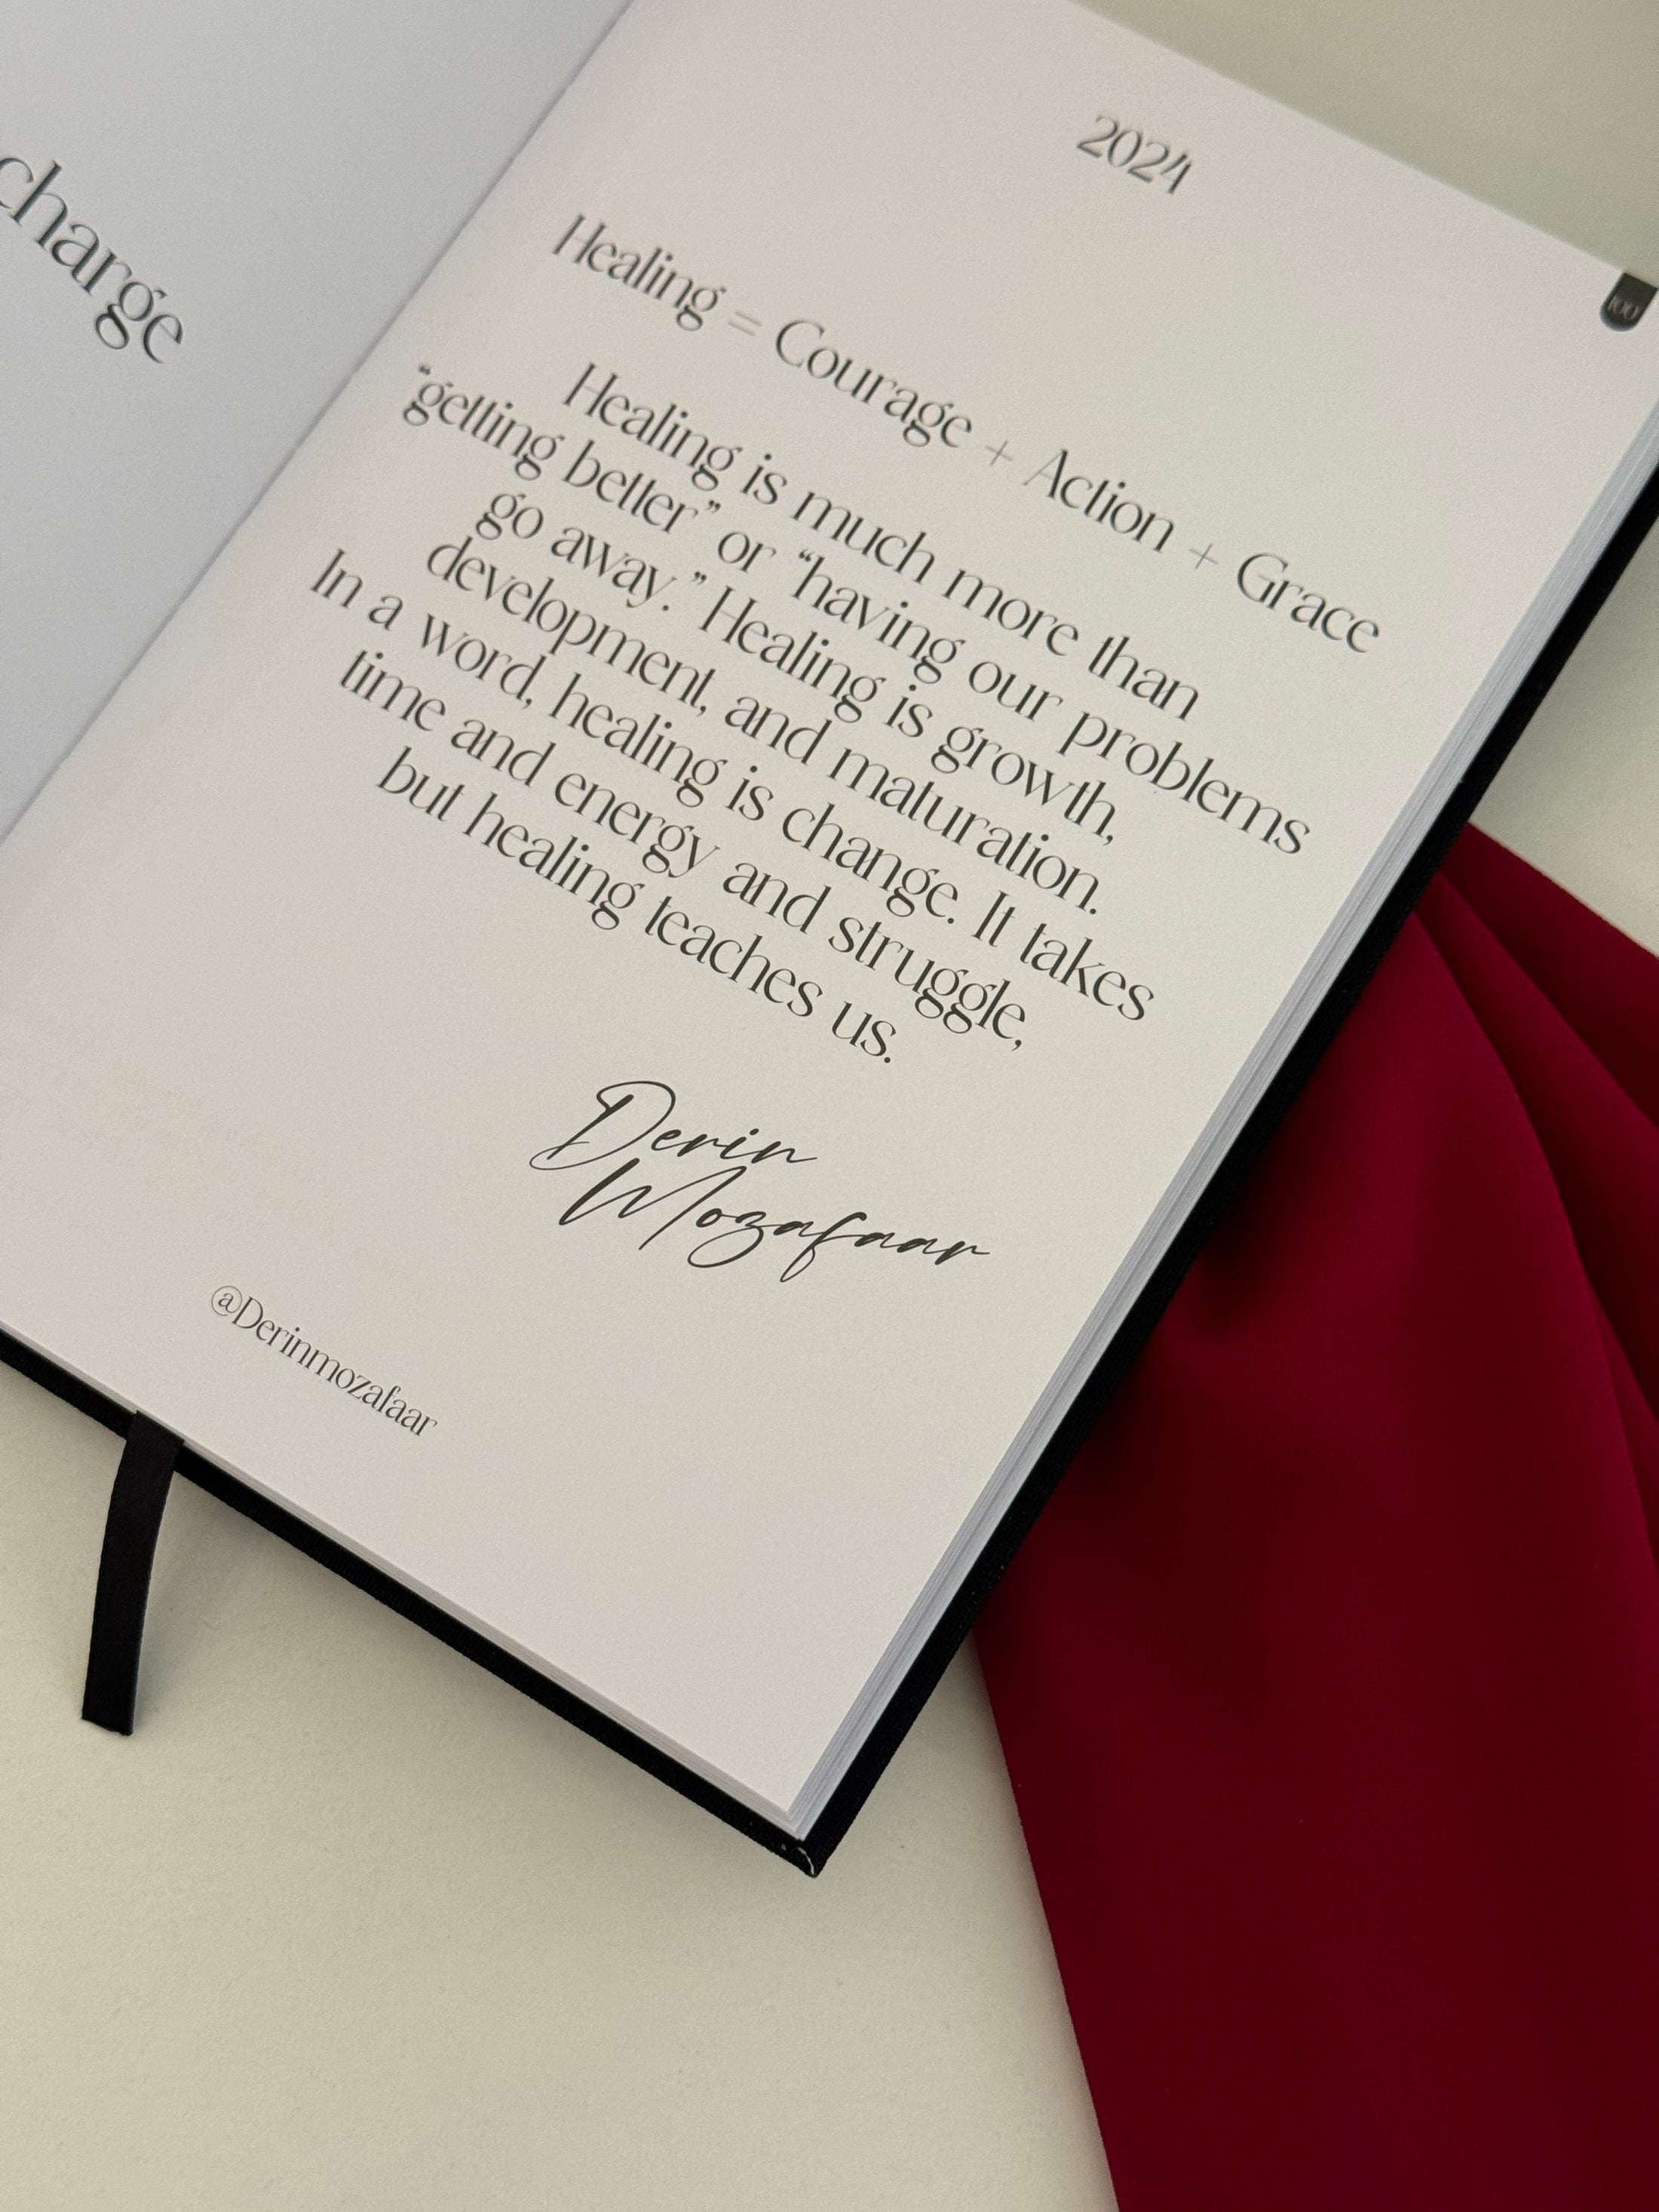 charge
2024
100
Healing = Courage + Action + Grace
Healing is much more than
“getting better” or “having our problems
go away.” Healing is growth,
development, and maturation.
In a word, healing is change. It takes
time and energy and struggle,
but healing teaches us.
Derin
Mozafaar
@Derinmozafaar